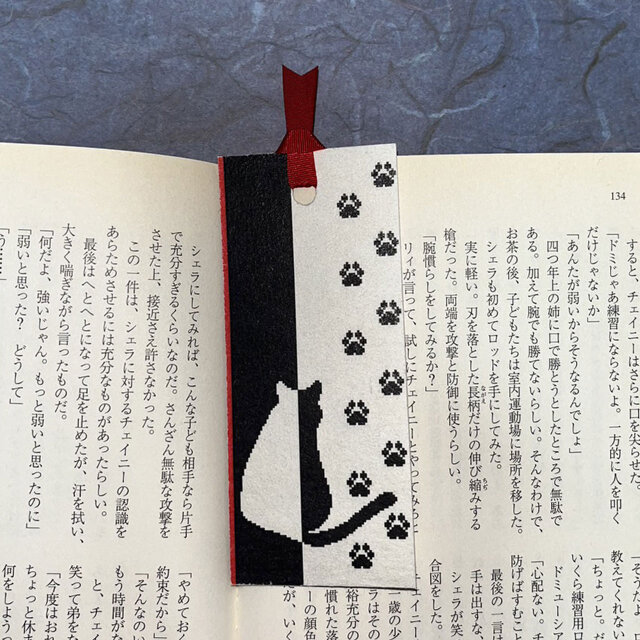 134
すると、チェイニーはさ
に口を尖らせ
「ドミじゃあ練習にならないよ。一方的に人を叩く
だけじゃないか」
「あんたが弱いからそうなるんでしょ」
四つ年上の姉に口で勝とうとしたところで無駄で
ある。加えて腕でも勝てないらしい。そんなわけで、
お茶の後、子どもたちは室内運動場に場所を移した。
シェラも初めてロッドを手にしてみた。
実に軽い。刃を落とした長柄だけの伸び縮みする
ながえ
ちぢ
槍だった。両端を攻撃と防御に使うらしい。
「腕慣らしをしてみるか？」
リィが言って、試しにチェイニーとやってみると
「そう
教えてくれない
「ちょっと。
いくら練習用ロ
ドミューシ
「心配ない。
防げばすむこ
最後の一言は
手は出すな
シェラが笑
合図をした。
チェイニー
一歳の少
裕充分の
慣れた落
の顔色
シェラにしてみれば、こんな子ども相手なら片手
で充分すぎるくらいなのだ。さんざん無駄な攻撃を
させた上、接近さえ許さなかった。
この一件は、シェラに対するチェイニーの認識を
あらためさせるには充分なものがあったらしい。
最後はへとへとになって足を止めたが、汗を拭い、
大きく喘ぎながら言ったものだ。
「何だよ、強いじゃん。もっと弱いと思ったのに」
「弱いと思った？　どうして」
「やめてお
約束だから」
「そんなのい
もう時間がな
と、チェイ
笑って弟を
「今度はお
ちょっと休
何をしよう